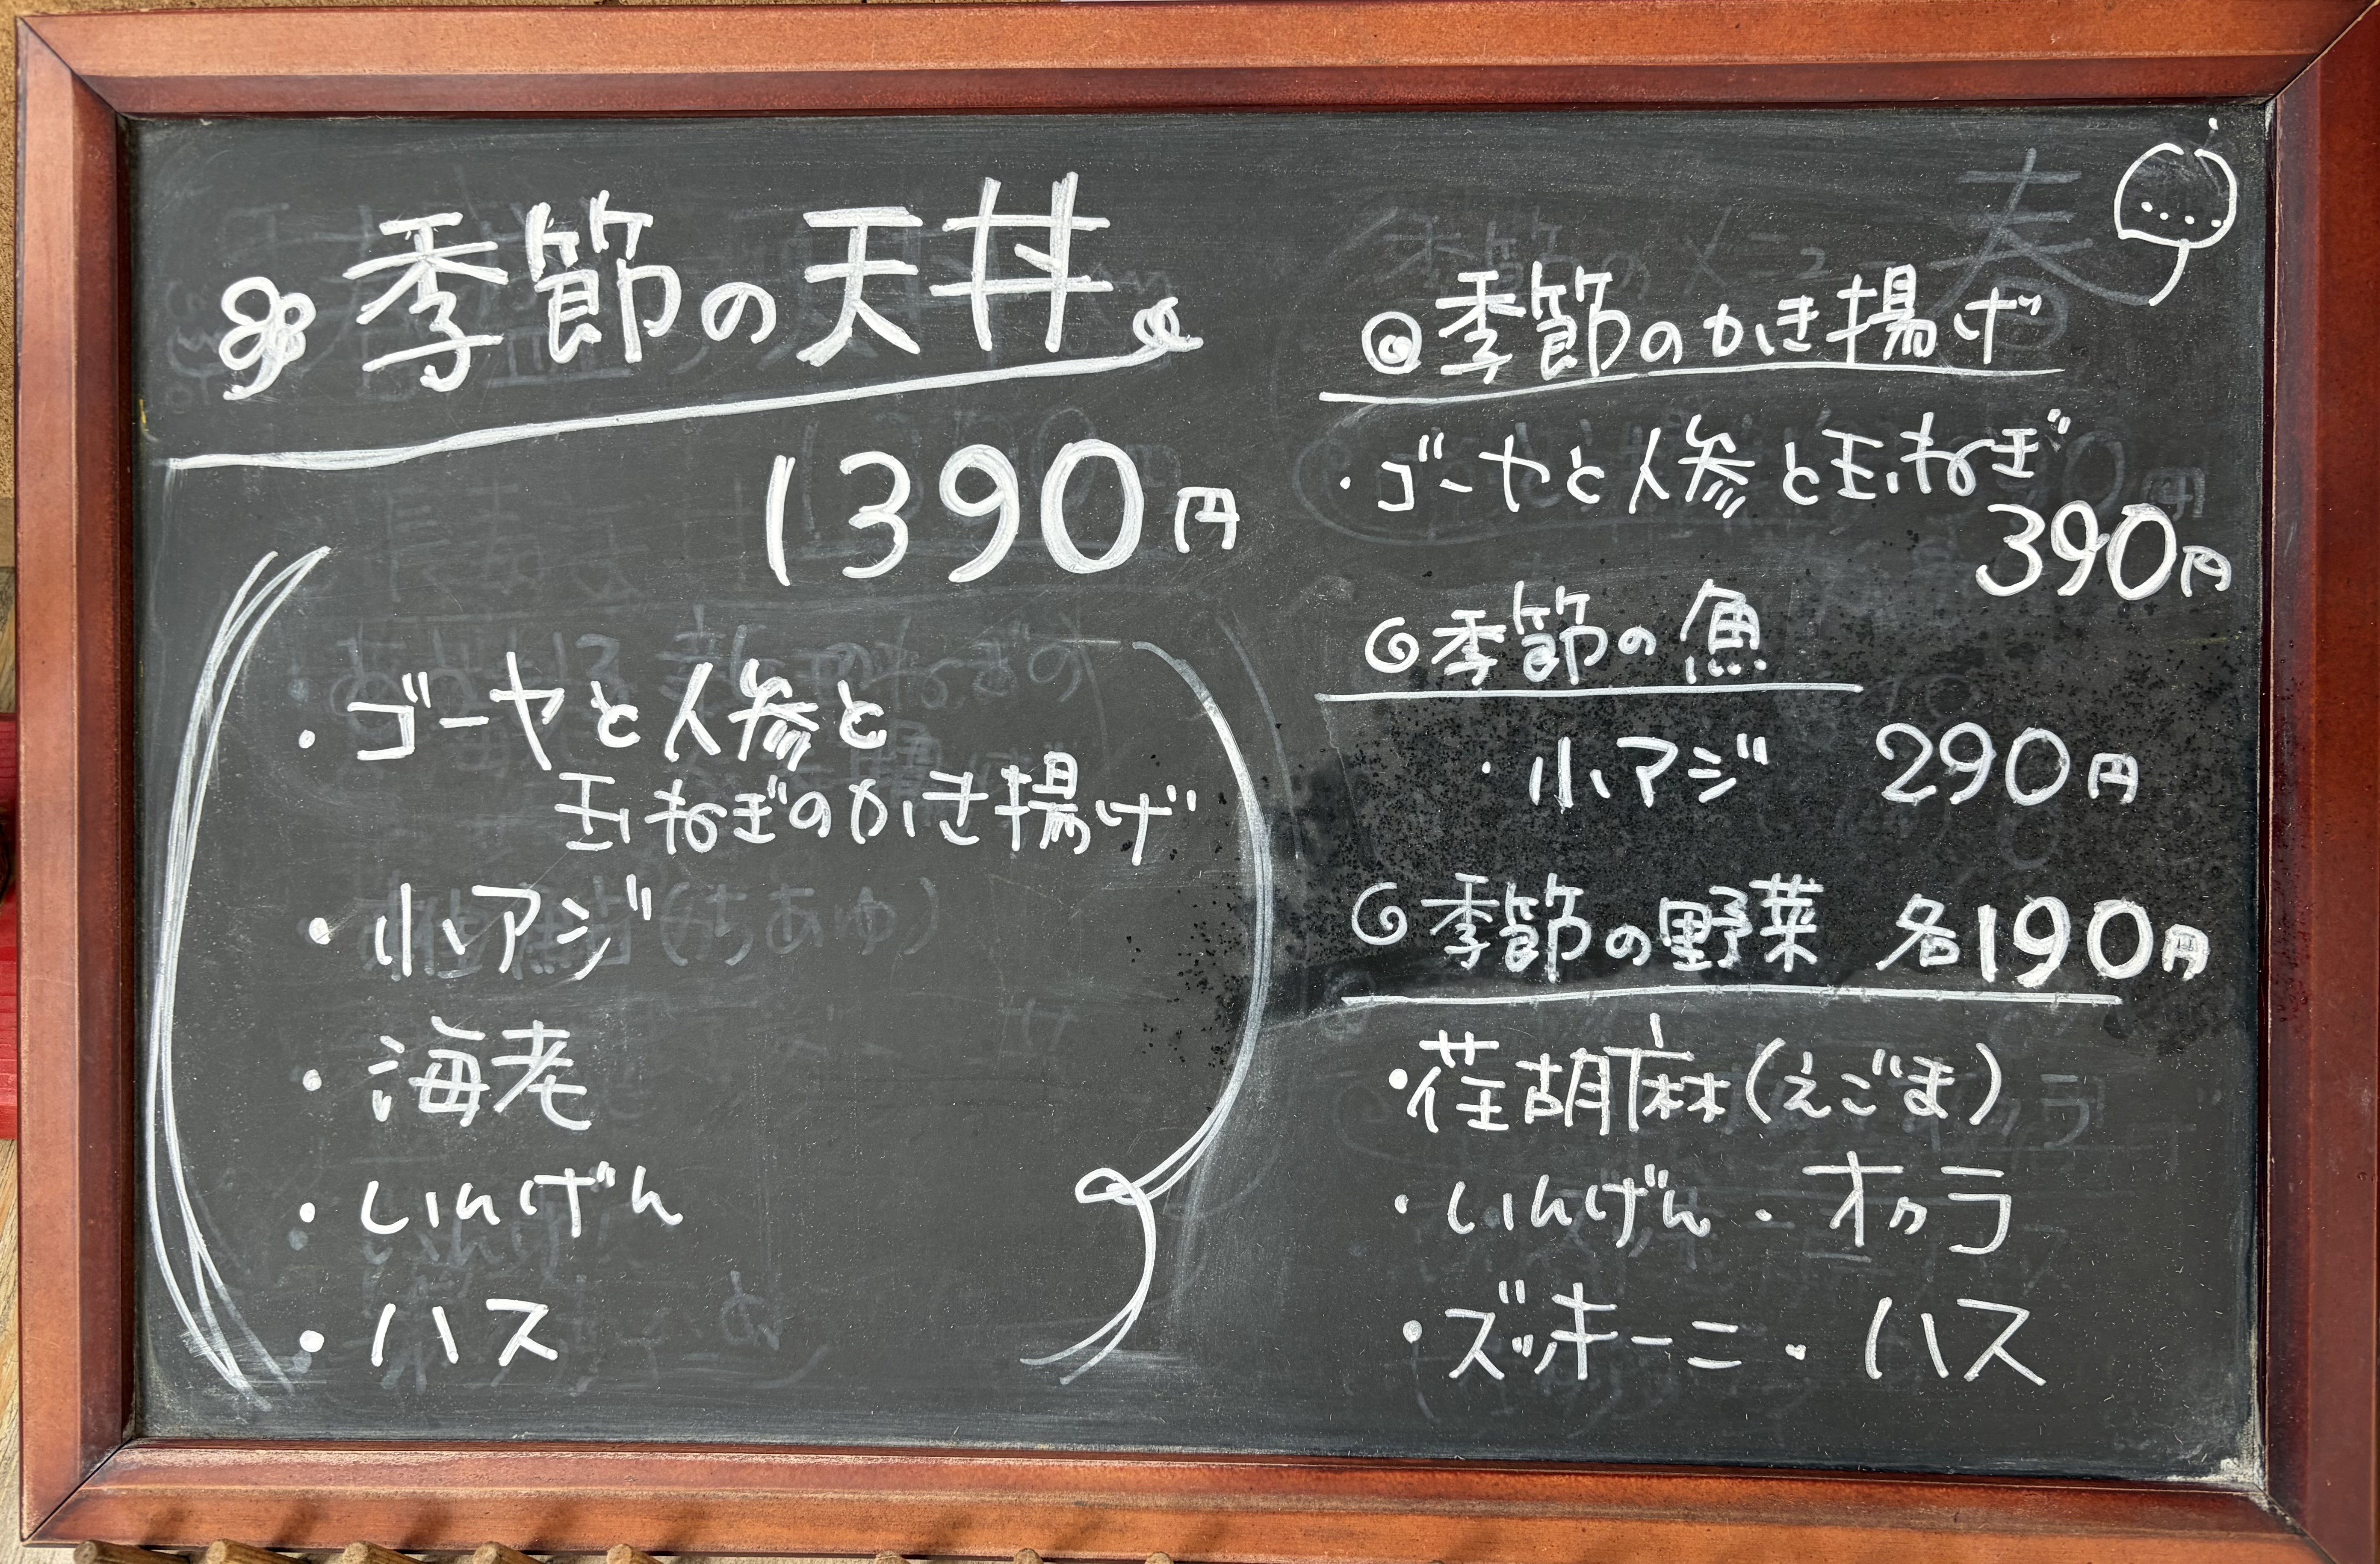 季節の天丼
1390円
・ゴーヤと人参と
玉ねぎのかき揚げ
・小アジ
・海老
・いんげん
・ハス
◎季節のかき揚げ
・ゴーヤと人参と玉ねぎ
390円
季節の魚
・小アジ 290円
季節の野菜 各190円
・荏胡麻(えごま)
・いんげん・オクラ
・ズッキーニ・ハス
春